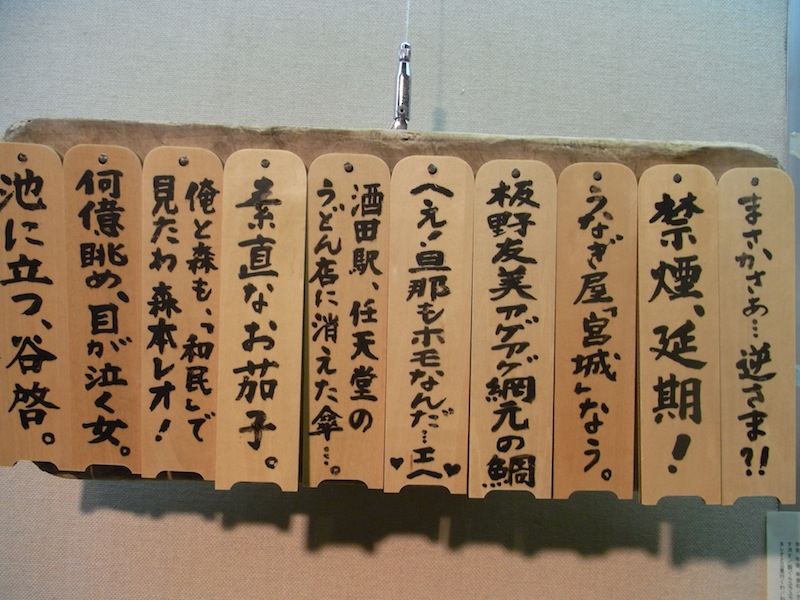 まさかさぁ…逆さま?!
禁煙、延期!
うなぎ屋「宮城」なう。
板野友美アゲアゲ網元の鯛
へえ!旦那もホモなんだ…エヘ♥♥
酒田駅、任天堂の
うどん店に消えた傘…。
素直なお茄子。
俺と森も、「和民」で
見たわ森本レオ!
何億眺め、目が泣く女。
池に立つ、谷啓。